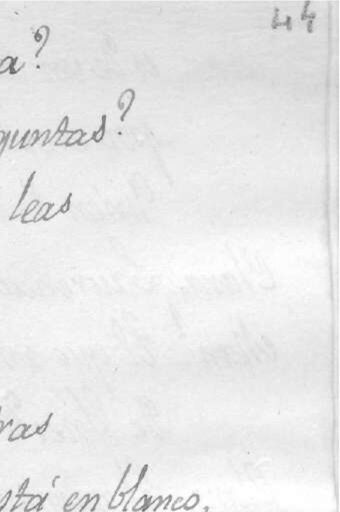 44
a?
guntas?
leas
ras
stá en blanco.